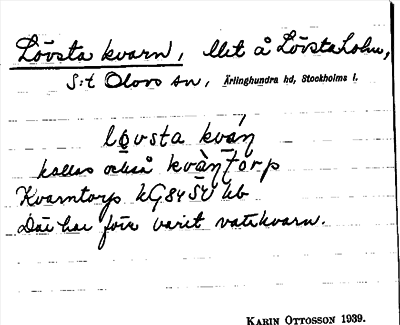 Lövsta kvarn, Utt å Lövstaholm,
S:t Olovs sn, Ärlinghundra hd, Stockholms l.
lo̤vsta kvá̱ṇ
kallas också kvà̱ṇtorp
Kvarntorp kG84SV kb
Där har förr varit vattkvarn.
KARIN OTTOSSON 1939.